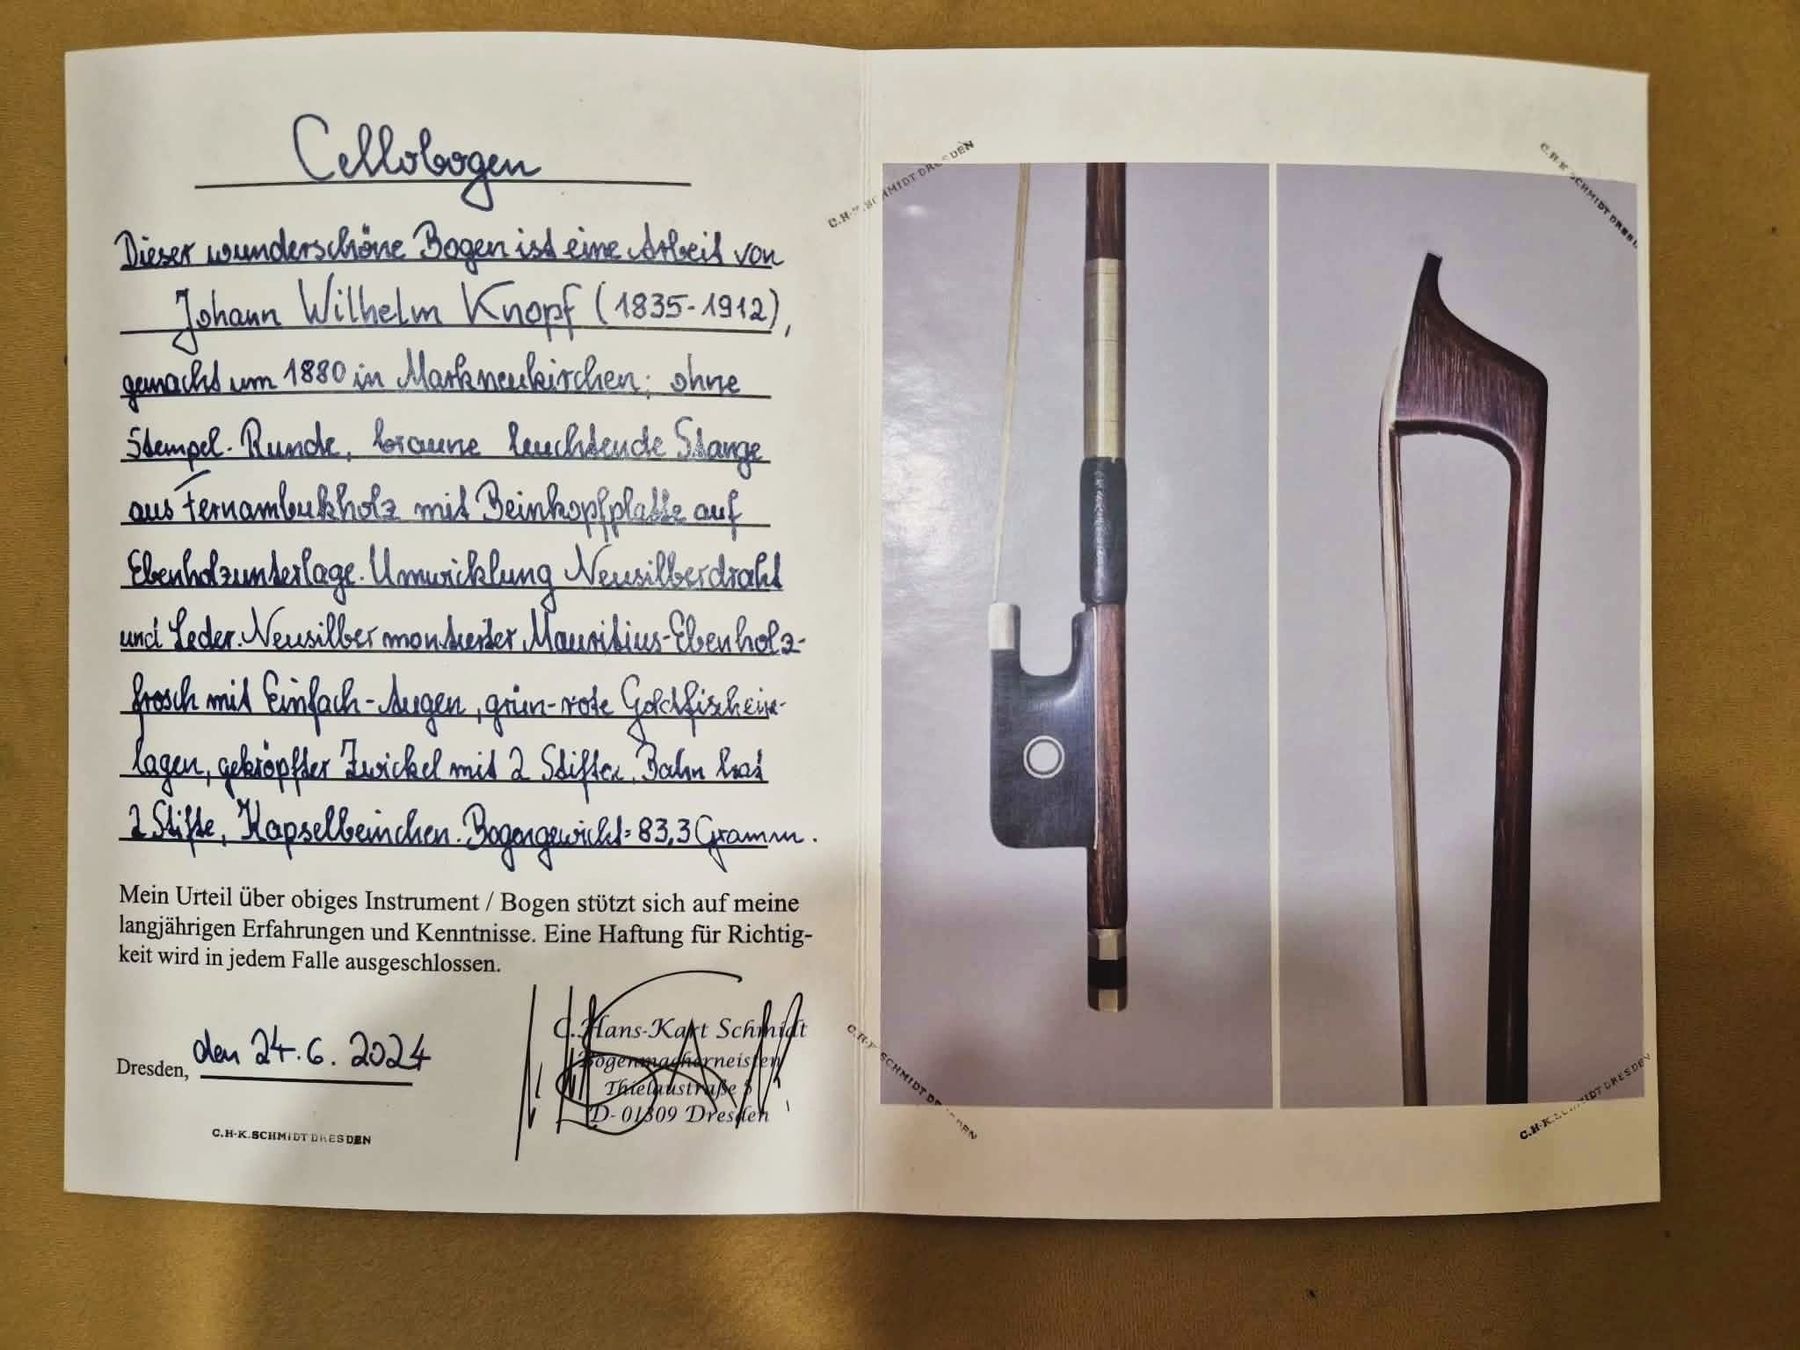 Cellobogen
Dieser wunderschöne Bogen ist eine Arbeit von
Johann Wilhelm Knopf (1835-1912),
gemacht um 1880 in Markneukirchen; ohne
Stempel. Runde, braune leuchtende Stange
aus Fernambukholz mit Beinkopfplatte auf
Ebenholzunterlage. Umwicklung Neusilberdraht
und Leder. Neusilber montierter Mauritius-Ebenholz-
frosch mit Einfach-Augen, grün-rote Goldfischein-
lagen, gekröpfter Zwickel mit 2 Stiften. Bahn hat
2 Stifte, Kapselbeinchen. Bogengewicht: 83,3 Gramm.
Mein Urteil über obiges Instrument / Bogen stützt sich auf meine
langjährigen Erfahrungen und Kenntnisse. Eine Haftung für Richtig-
keit wird in jedem Falle ausgeschlossen.
Dresden, den 24.6.2024
C. Hans-Karl Schmidt
Bogenmachermeister
Thielaustraße 5
D-01309 Dresden
C.H-K.SCHMIDT DRESDEN
C.H-K.SCHMIDT DRESDEN
C.H-K.SCHMIDT DRESDEN
C.H-K.SCHMIDT DRESDEN
C.H-K.SCHMIDT DRESDEN